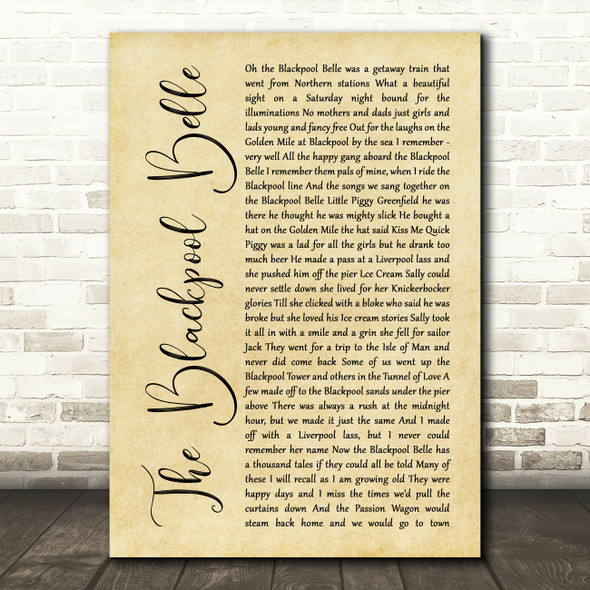 The Blackpool Belle
Oh the Blackpool Belle was a getaway train that
went from Northern stations What a beautiful
sight on a Saturday night bound for the
illuminations No mothers and dads just girls and
lads young and fancy free Out for the laughs on the
Golden Mile at Blackpool by the sea I remember -
very well All the happy gang aboard the Blackpool
Belle I remember them pals of mine, when I ride the
Blackpool line And the songs we sang together on
the Blackpool Belle Little Piggy Greenfield he was
there he thought he was mighty slick He bought a
hat on the Golden Mile the hat said Kiss Me Quick
Piggy was a lad for all the girls but he drank too
much beer He made a pass at a Liverpool lass and
she pushed him off the pier Lce Cream Sally could
never settle down she lived for her Knickerbocker
glories Till she clicked with a bloke who said he was
broke but she loved his Ice cream stories Sally took
it all in with a smile and a grin she fell for sailor
Jack They went for a trip to the Isle of Man and
never did come back Some of us went up the
Blackpool Tower and others in the Tunnel of Love A
few made off to the Blackpool sands under the pier
above There was always a rush at the midnight
hour, but we made it just the same And I made
off with a Liverpool lass, but I never could
remember her name Now the Blackpool Belle has
a thousand tales if they could all be told Many of
these I will recall as I am growing old They were
happy days and I miss the times we'd pull the
curtains down And the Passion Wagon would
steam back home and we would go to town